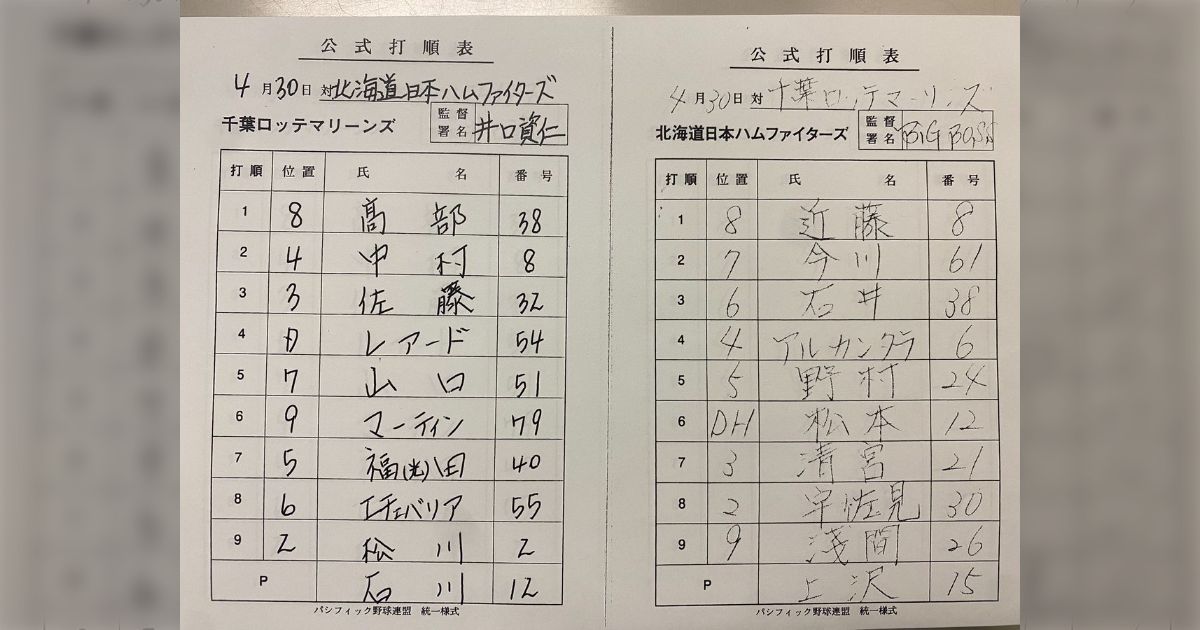 公式打順表
4月30日 対北海道日本ハムファイターズ
千葉ロッテマリーンズ 監督署名 井口資仁
打順 位置 氏名 番号
1 8 髙部 38
2 4 中村 8
3 3 佐藤 32
4 D レアード 54
5 7 山口 51
6 9 マーティン 79
7 5 福(光)田 40
8 6 エチェバリア 55
9 2 松川 2
P 石川 12
パシフィック野球連盟 統一様式
公式打順表
4月30日 対 千葉ロッテマリーンズ
北海道日本ハムファイターズ 監督署名 BIG BOSS
打順 位置 氏名 番号
1 8 近藤 8
2 7 今川 61
3 6 石井 38
4 4 アルカンタラ 6
5 5 野村 24
6 DH 松本 12
7 3 清宮 21
8 2 宇佐見 30
9 9 浅間 26
P 上沢 15
パシフィック野球連盟 統一様式